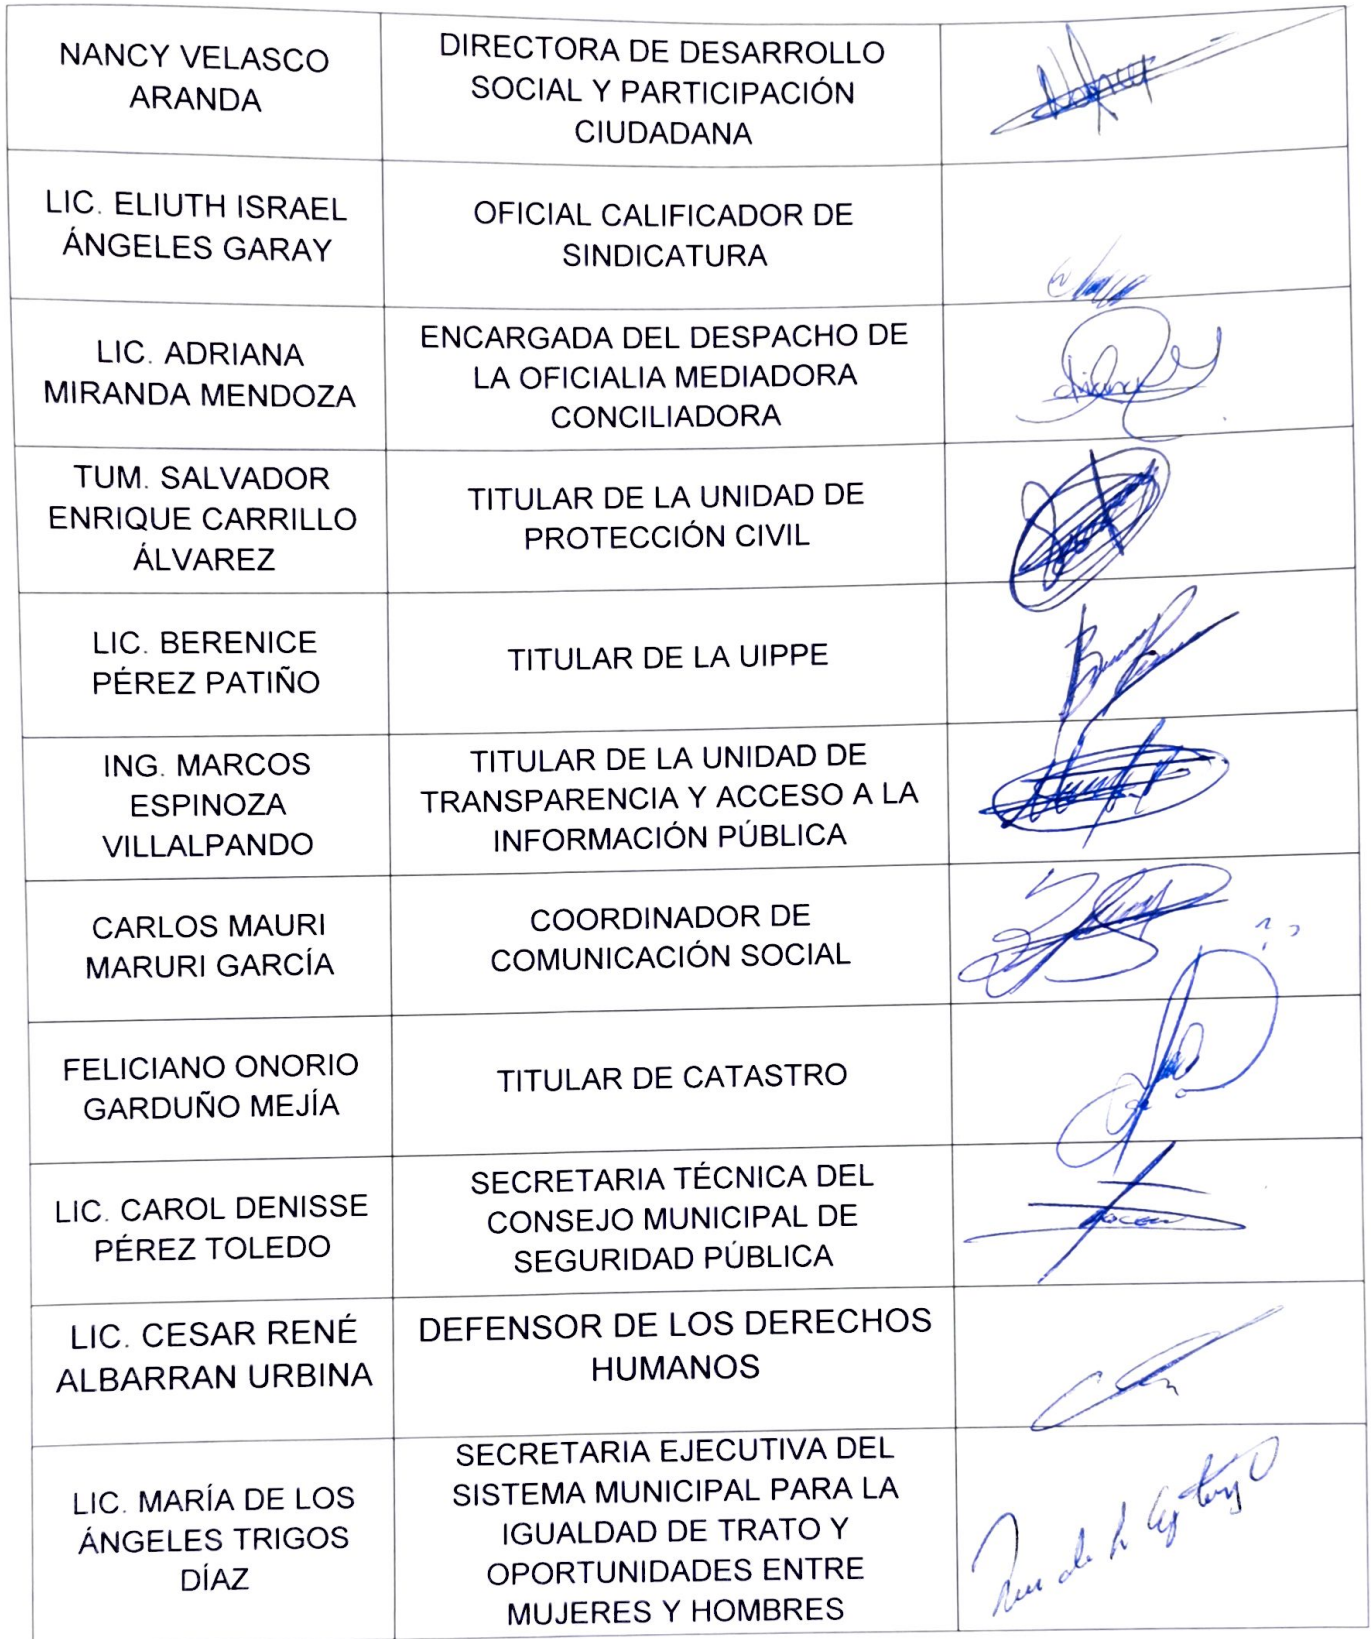 NANCY VELASCO
ARANDA
DIRECTORA DE DESARROLLO
SOCIAL Y PARTICIPACIÓN
CIUDADANA
LIC. ELIUTH ISRAEL
ÁNGELES GARAY
OFICIAL CALIFICADOR DE
SINDICATURA
LIC. ADRIANA
MIRANDA MENDOZA
ENCARGADA DEL DESPACHO DE
LA OFICIALIA MEDIADORA
CONCILIADORA
TUM. SALVADOR
ENRIQUE CARRILLO
ÁLVAREZ
TITULAR DE LA UNIDAD DE
PROTECCIÓN CIVIL
LIC. BERENICE
PÉREZ PATIÑO
TITULAR DE LA UIPPE
ING. MARCOS
ESPINOZA
VILLALPANDO
TITULAR DE LA UNIDAD DE
TRANSPARENCIA Y ACCESO A LA
INFORMACIÓN PÚBLICA
CARLOS MAURI
MARURI GARCÍA
COORDINADOR DE
COMUNICACIÓN SOCIAL
FELICIANO ONORIO
GARDUÑO MEJÍA
TITULAR DE CATASTRO
LIC. CAROL DENISSE
PÉREZ TOLEDO
SECRETARIA TÉCNICA DEL
CONSEJO MUNICIPAL DE
SEGURIDAD PÚBLICA
LIC. CESAR RENÉ
ALBARRAN URBINA
DEFENSOR DE LOS DERECHOS
HUMANOS
LIC. MARÍA DE LOS
ÁNGELES TRIGOS
DÍAZ
SECRETARIA EJECUTIVA DEL
SISTEMA MUNICIPAL PARA LA
IGUALDAD DE TRATO Y
OPORTUNIDADES ENTRE
MUJERES Y HOMBRES